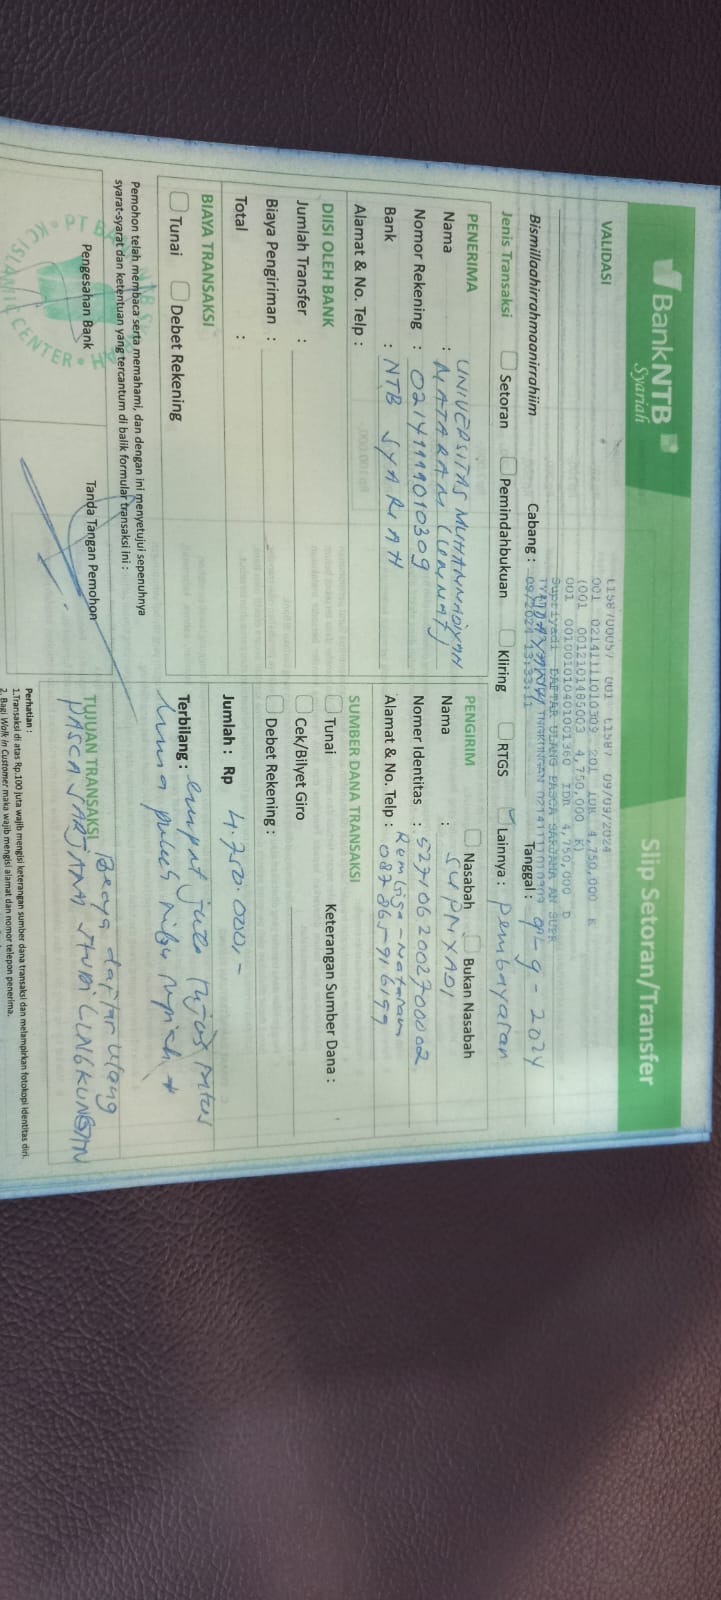 BankNTB
Syariah
Slip Setoran/Transfer
VALIDASI
t158700057 001 t1587 09/09/2024
001 02141111010309 201 IDR 4,750,000 K
(001 0012101485003 4,750,000 K)
001 0010010401001360 IDR 4,750,000 D
Supriyadi DAFTAR ULANG PASCA SARJANA AN SUPR
09/2024 13:33:11
Bismillaahirrahmaanirrahiim
Cabang :
Tanggal : 09-9-2024
Jenis Transaksi
Setoran
Pemindahbukuan
Kliring
RTGS
Lainnya : pembayaran
PENERIMA
Nama : UNIVERSITAS MUHAMMADIYAH
MATARAM (UMMAT)
Nomor Rekening : 02141111010309
Bank : NTB SYARIAH
Alamat & No. Telp :
PENGIRIM
Nasabah
Bukan Nasabah
Nama : SUPRIYADI
Nomer Identitas : 5271062002700002
Alamat & No. Telp : Rembiga - Mataram
087865916199
DIISI OLEH BANK
Jumlah Transfer :
Biaya Pengiriman :
Total :
SUMBER DANA TRANSAKSI
Tunai
Keterangan Sumber Dana :
Cek/Bilyet Giro
Debet Rekening :
BIAYA TRANSAKSI
Tunai
Debet Rekening
Jumlah : Rp 4.750.000,-
Terbilang : empat juta tujuh ratus
lima puluh ribu rupiah
Pemohon telah membaca serta memahami, dan dengan ini menyetujui sepenuhnya
syarat-syarat dan ketentuan yang tercantum di balik formulir transaksi ini :
Pengesahan Bank
Tanda Tangan Pemohon
TUJUAN TRANSAKSI
Biaya daftar ulang
PASCA SARJANA STUDI LINGKUNGAN
Perhatian :
1.Transaksi di atas Rp.100 juta wajib mengisi keterangan sumber dana transaksi dan melampirkan fotokopi identitas diri.
2. Bagi Walk in Customer maka wajib mengisi alamat dan nomor telepon penerima.